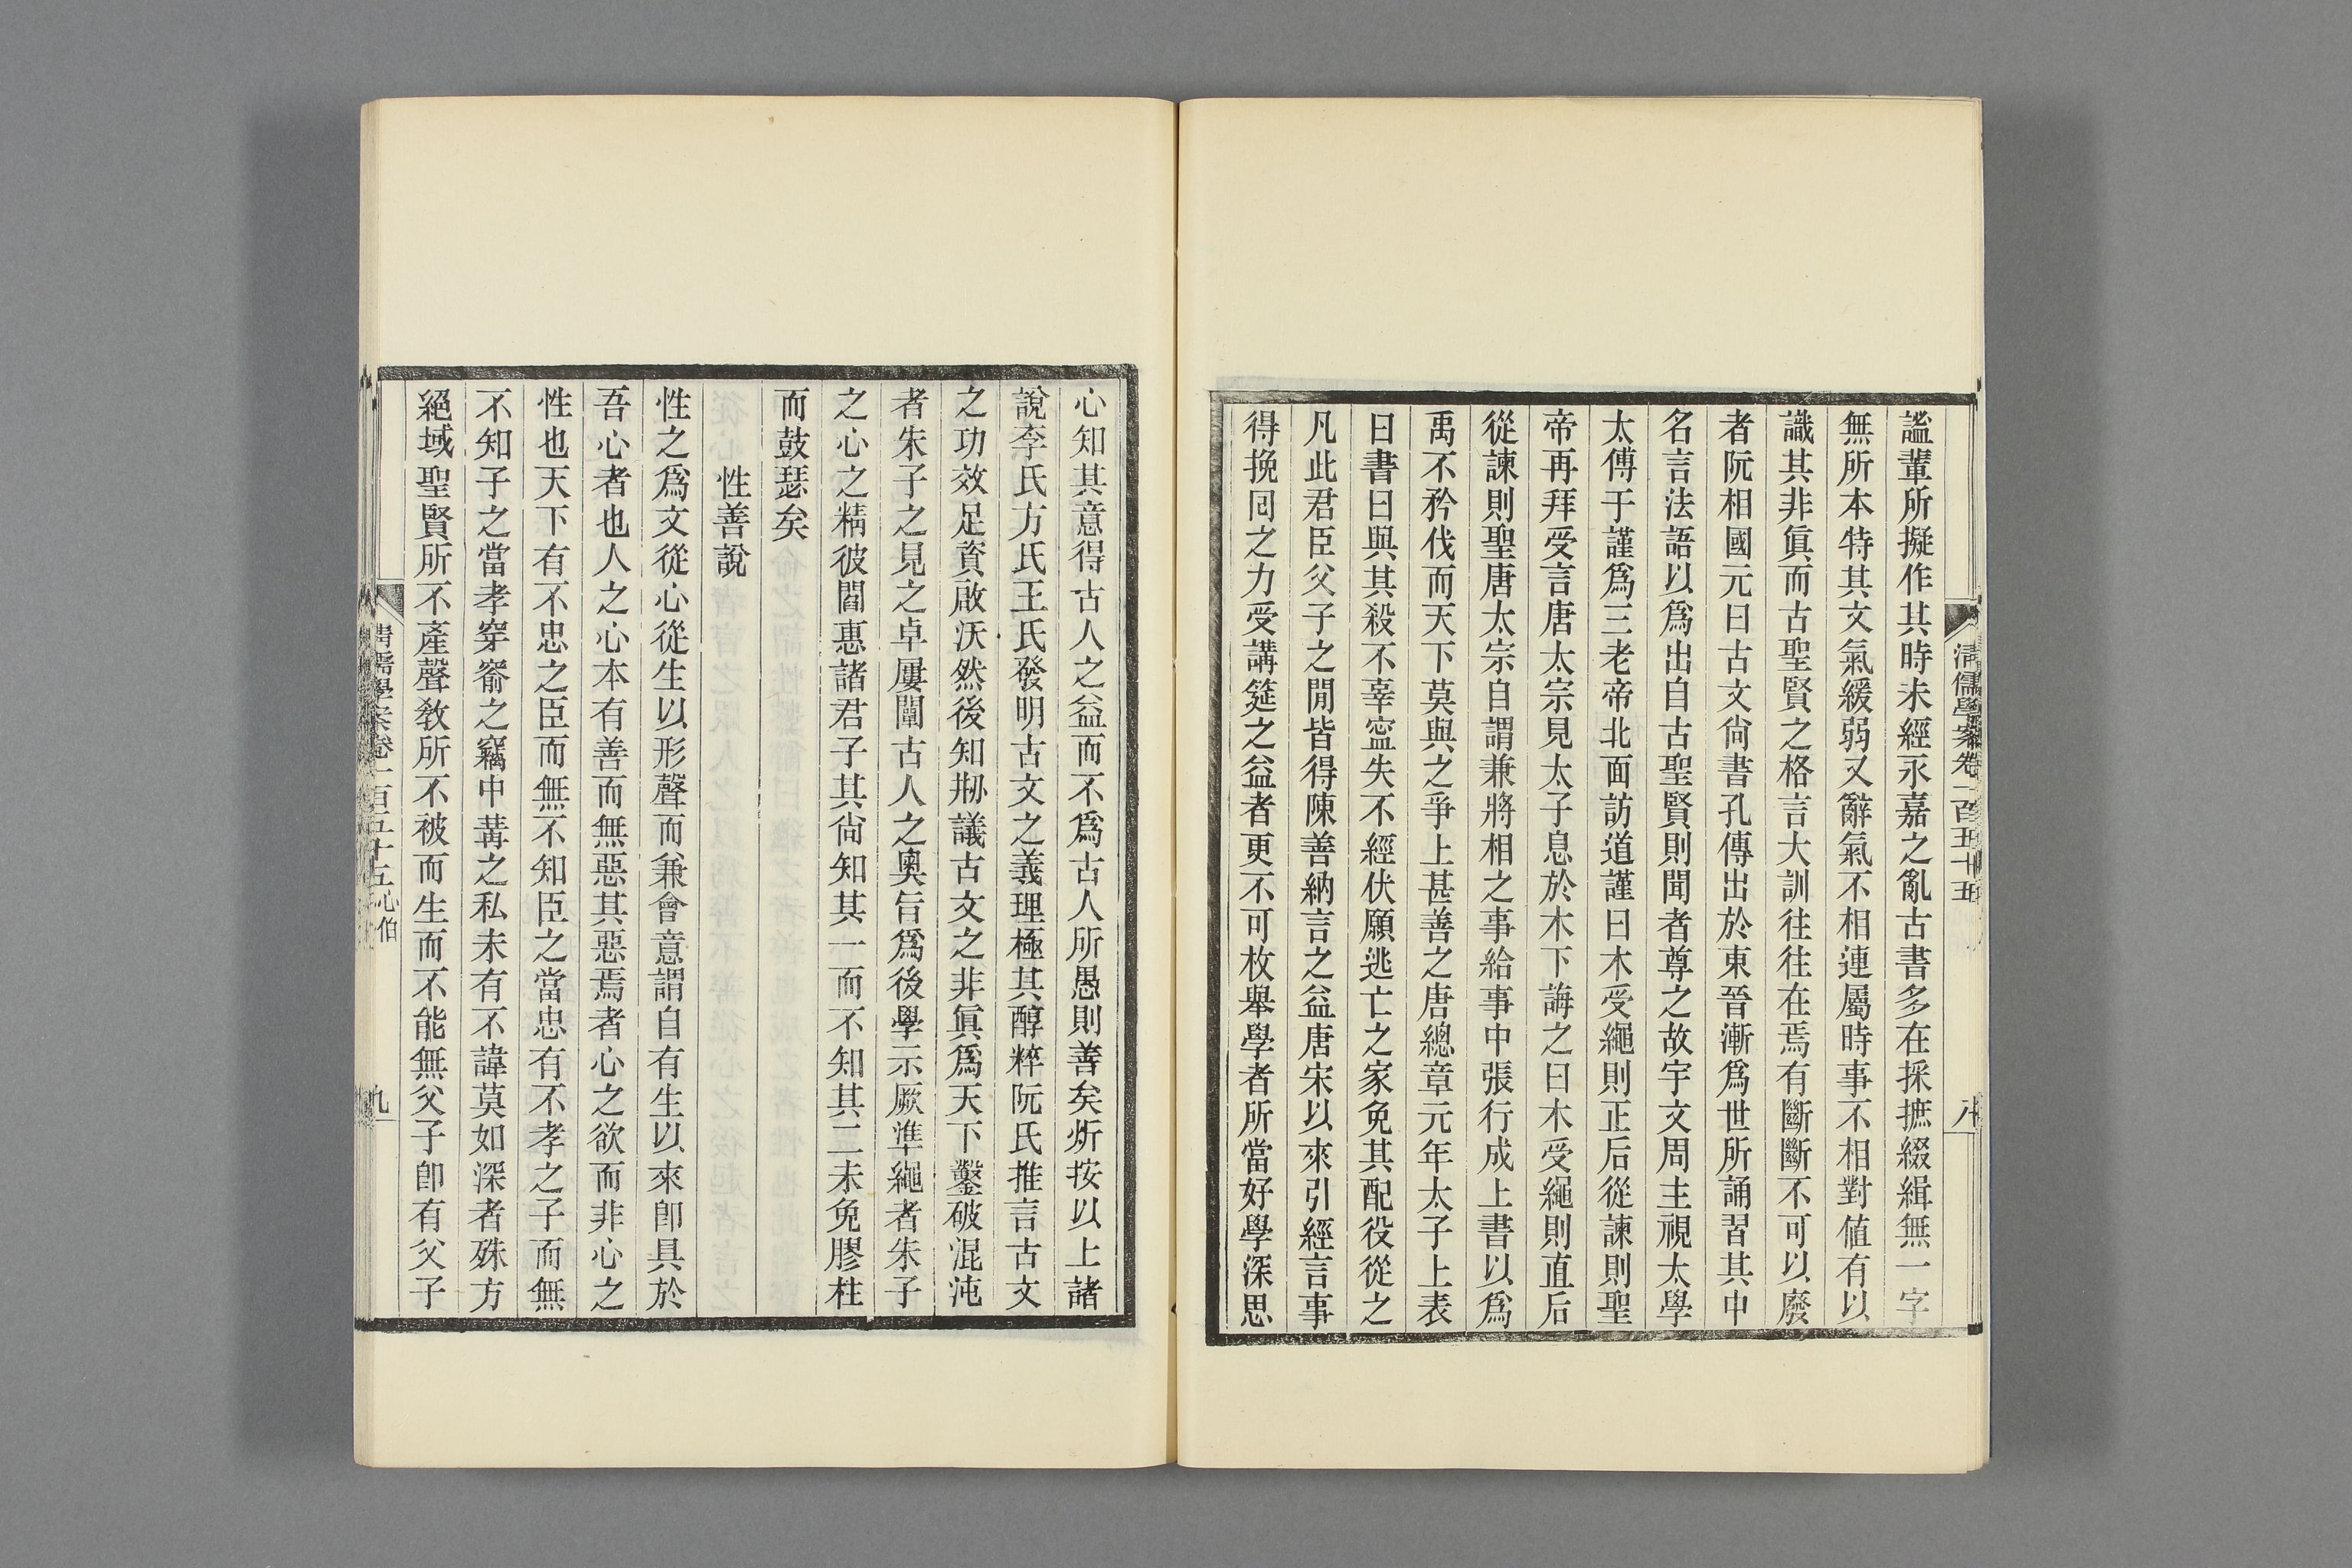 清儒學案卷一百五十五
八
謐輩所擬作其時未經永嘉之亂古書多在採摭綴緝無一字
無所本特其文氣緩弱又辭氣不相連屬時事不相對値有以
識其非眞而古聖賢之格言大訓往往在焉有斷斷不可以廢
者阮相國元曰古文尙書孔傳出於東晉漸爲世所誦習其中
名言法語以爲出自古聖賢則聞者尊之故宇文周主視太學
太傅于謹爲三老帝北面訪道謹曰木受繩則正后從諫則聖
帝再拜受言唐太宗見太子息於木下誨之曰木受繩則直后
從諫則聖唐太宗自謂兼將相之事給事中張行成上書以爲
禹不矜伐而天下莫與之爭上甚善之唐總章元年太子上表
曰書曰與其殺不辜寍失不經伏願逃亡之家免其配役從之
凡此君臣父子之閒皆得陳善納言之益唐宋以來引經言事
得挽回之力受講筵之益者更不可枚舉學者所當好學深思
心知其意得古人之益而不爲古人所愚則善矣炘按以上諸
說李氏方氏王氏發明古文之義理極其醇粹阮氏推言古文
之功效足資啟沃然後知刱議古文之非眞爲天下鑿破混沌
者朱子之見之卓屢闡古人之奧旨爲後學示厥準繩者朱子
之心之精彼閻惠諸君子其尙知其一而不知其二未免膠柱
而鼓瑟矣
性善說
性之爲文從心從生以形聲而兼會意謂自有生以來卽具於
吾心者也人之心本有善而無惡其惡焉者心之欲而非心之
性也天下有不忠之臣而無不知臣之當忠有不孝之子而無
不知子之當孝穿窬之竊中冓之私未有不諱莫如深者殊方
絕域聖賢所不產聲敎所不被而生而不能無父子卽有父子
清儒學案卷一百五十五心伯
九